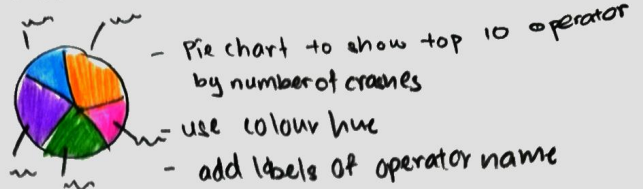 - Pie chart to show top 10 operator
by number of crashes
- use colour hue
- add labels of operator name